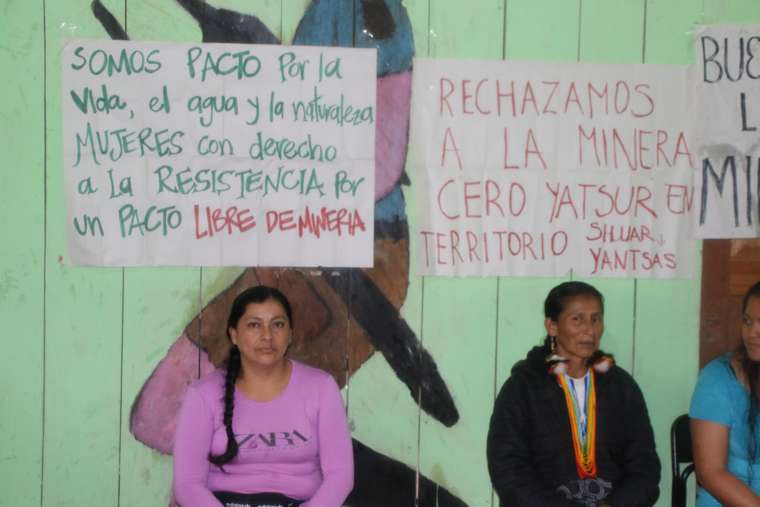 SOMOS PACTO Por la
Vida, el agua y la naturaleza
MUJERES con derecho
a La RESISTENCIA Por
un PACTO LIBRE DE MINERIA
RECHAZAMOS
A LA MINERA
CERO YATSUR EN
TERRITORIO SHUAR
YANTSAS
BUE
L
MIN
ZARA